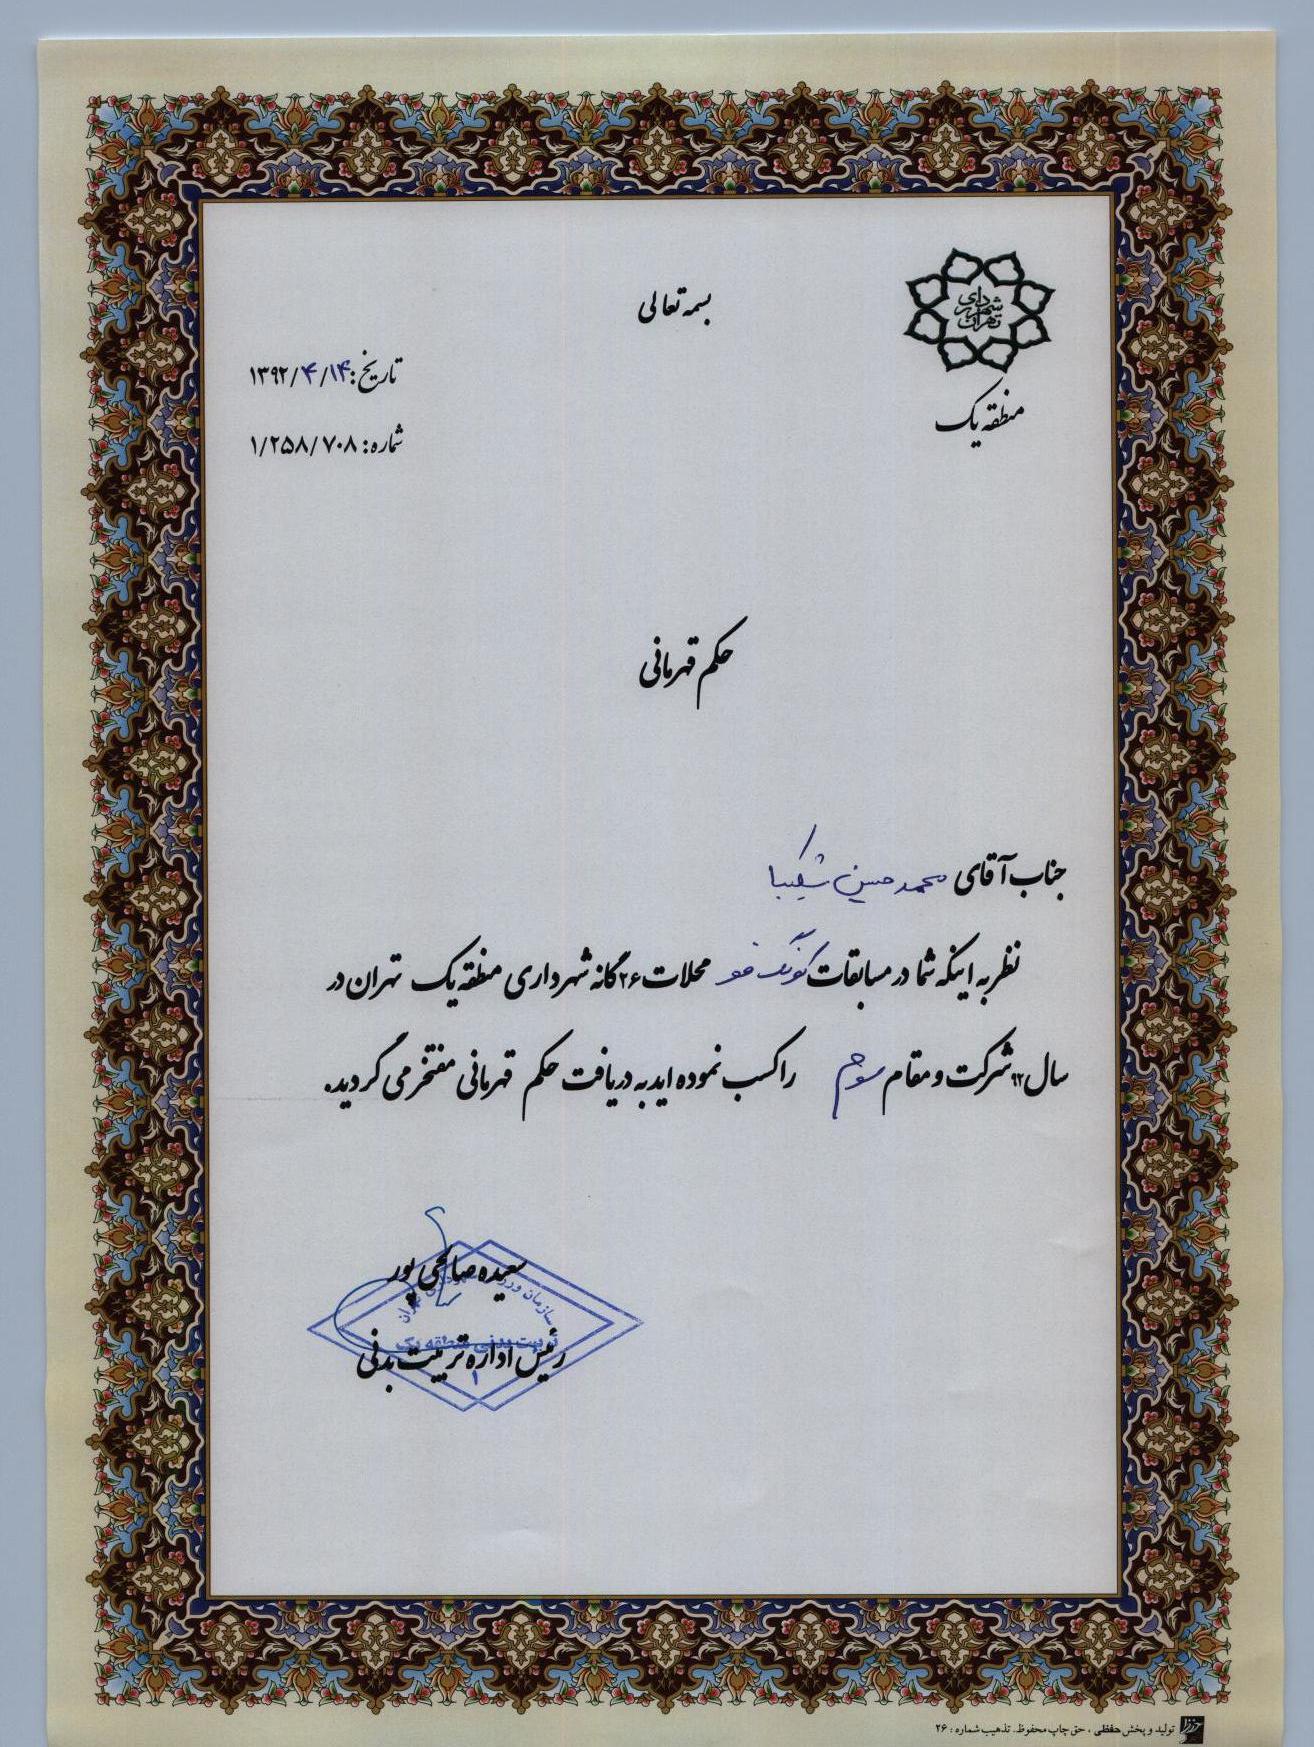 بسمه تعالی
شهرداری تهران
منطقه یک
تاریخ: ۱۳۹۲/۴/۱۴
شماره: ۱/۲۵۸/۷۰۸
حکم قهرمانی
جناب آقای محمد حسین شکیبا
نظر به اینکه شما در مسابقات کونگ فو محلات ۲۶ گانه شهرداری منطقه یک تهران در
سال ۹۲ شرکت و مقام سوم را کسب نموده اید به دریافت حکم قهرمانی مفتخر می گردید.
سعیده صالحی پور
رئیس اداره تربیت بدنی
سازمان ورزش تهران
تربیت بدنی منطقه یک
۱
تولید و پخش حفظی ، حق چاپ محفوظ. تذهیب شماره : ۲۶